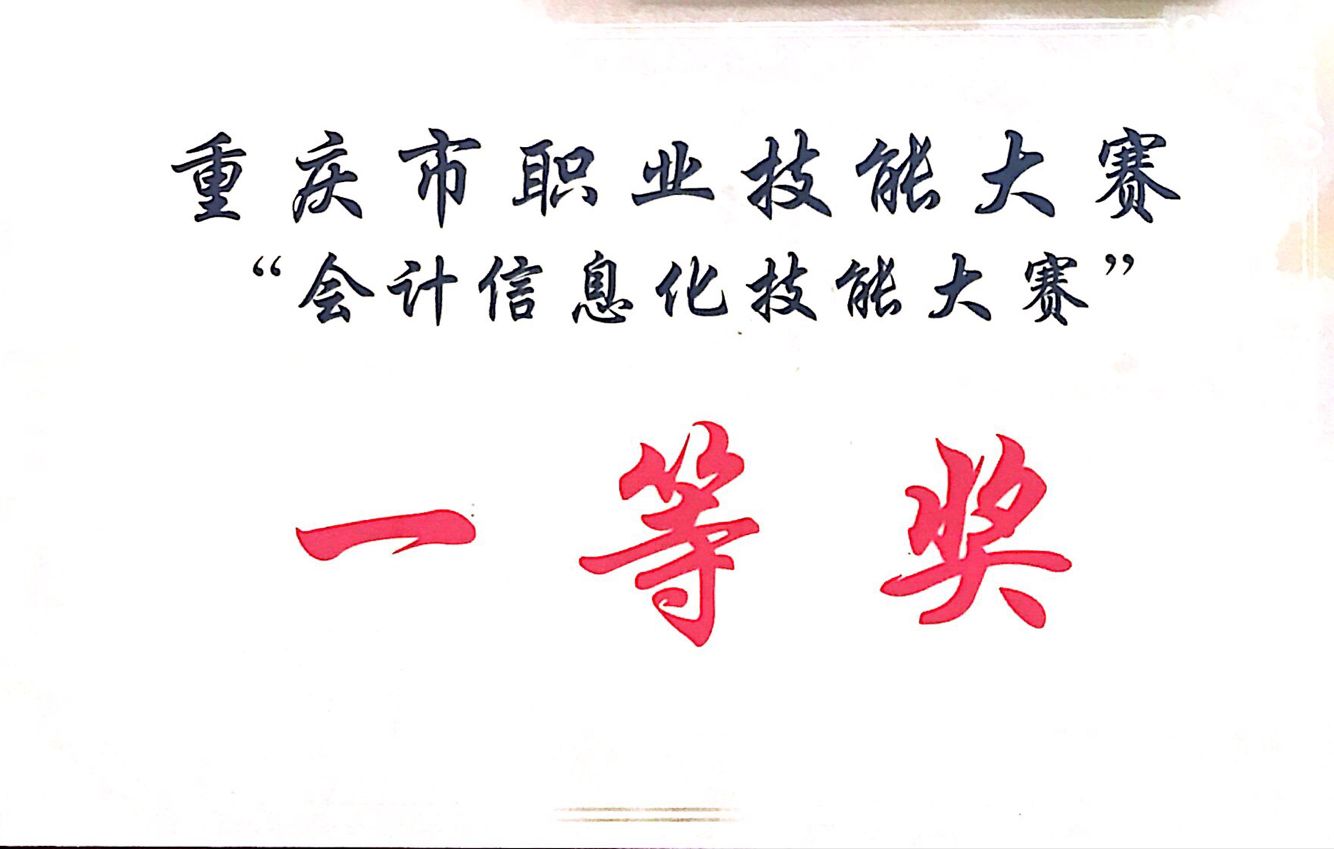 重庆市职业技能大赛
“会计信息化技能大赛”
一等奖